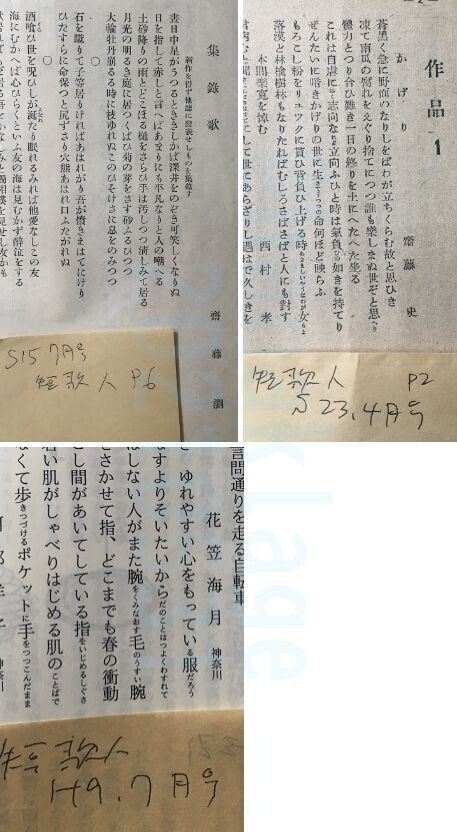 集錄歌
齋藤瀏
新作を得ず他誌に發表せしものを集錄す
晝日中星がうつるとききしかば深井をのぞき可笑しくなりぬ
日を指して赤しと言へばあまりにも平凡なりと人の嘲へる
土砂降りの雨とどこほる樋をさらひ手は汚しつつ淸しみて居る
月光の明るき庭に居つくばひ菊の芽をさす砂ふるひつつ
大輪牡丹崩るる時に枝ゆれぬこのひそけさに息をのみつつ
○
石を蹴りて子等居りければあはれがり吾が憤さへはてにけり
ひたすらに命保つと尻ずさり穴熊あはれ口ふたがれぬ
○
酒喰ひ世を呪ひしが涎たり眠れるみれば他愛なしこの友
海にむかへば心ひらくといふ友の海は見むかず酔泣をする
S15 7月号
短歌人 P.6
—2—
作品1
かげり
齋藤史
蒼黑く急に野面のなりしをばわが立ちくらむ故と思ひき
凍て南瓜の腐れをえぐり捨てにつつ誰も樂しまぬ世ぞと思へり
體力とつり合ひ難き一日の終りを土にへたへた坐る
これは自虐に近き志向なれ立向ふひと時は氣負の如きを持てり
ぜんたいに暗きかげりの世に生きうつつの命何ほど映らふ
もろこし粉をリュックに貰ひ背負ひ上げる時
林檎樹林もなりたればむしろさばさばと人にも對す
本間樂寛を悼む
西村孝
短歌人 P2
S23.4月号
言問通りを走る自転車
花笠海月 神奈川
ゆれやすい心をもっている服だろう
ますよりそいたいからだのことはつよくわすれて
はしない人がまた腕をくみなおす毛のうすい腕
とさかせて指、どこまでも春の衝動
とし間があいてしている指をいじめるしぐさ
若い肌がしゃべりはじめる肌のことばで
なくて歩きつづけるポケットに手をつっこんだまま
神奈川
短歌人
H9.7月号